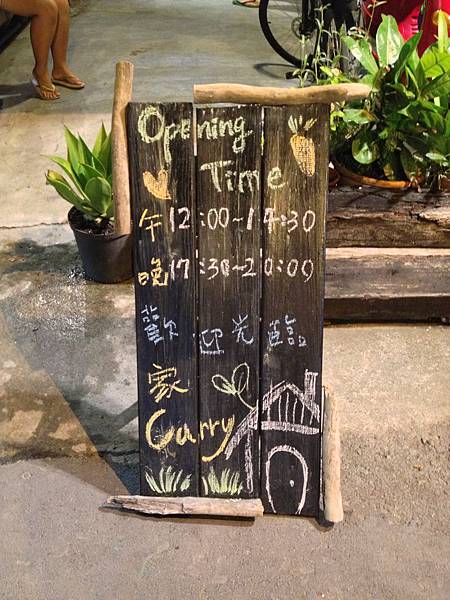 Opening
Time
午12:00~14:30
晚17:30~20:00
歡迎光臨
家
Curry